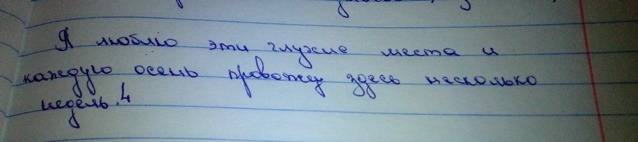 Я люблю эти глухие места и
каждую осень провожу здесь несколько
недель.4